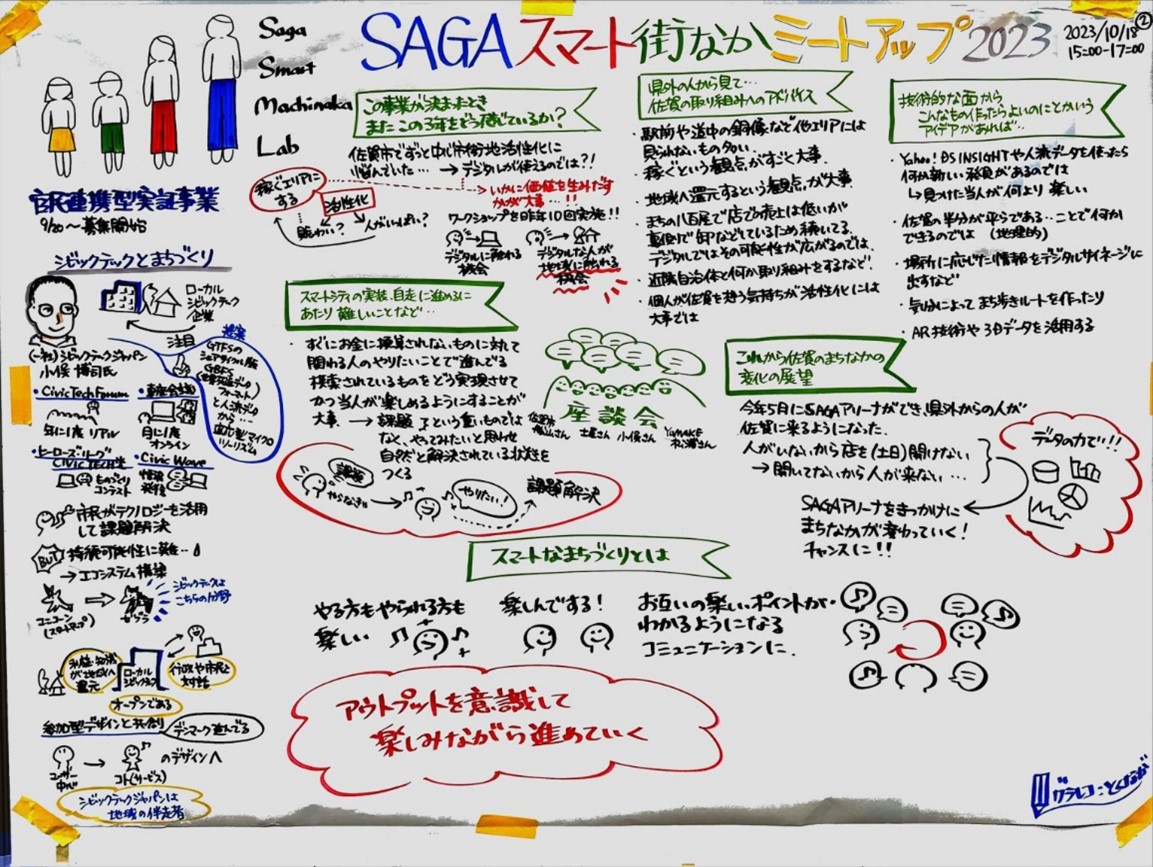 SAGA スマート街なかミートアップ 2023
2023/10/18 ②
15:00-17:00
Saga
Smart
Machinaka
Lab
官民連携型実証事業
9/20〜募集開始
シビックテックとまちづくり
ローカル
シビックテック
企業
注目
(一社)シビックテックジャパン
小俣 博司氏
提案
GTFSの
GBFS
と人流データ
から…
適応型マイクロ
ツーリズム
・Civic Tech Forum
年に1度 リアル
月に1度
オンライン
・ヒーローズ・リーグ
CIVIC TECH
ものづくり
コンテスト
・Civic Wave
情報
発信
市民がテクノロジーを活用
して課題解決
BUT 持続可能性に難…
→エコシステム構築
ユニコーン
(スタートアップ)
ゼブラ
シビックテックは
こちらの分野
利益・知識
が地域へ
還元
ローカル
シビックテック
行政や市民と
対話
オープンである
参加型デザインと共創
デンマーク進んでる
ユーザー
中心
→
コト(サービス)
のデザインへ
シビックテックジャパンは
地域の伴走者
この事業が決まったとき
またこの3年をどう感じているか?
佐賀市でずっと中心市街地活性化に
悩んでいた… → デジタルが使えるのでは?!
稼ぐエリアに
する
活性化
賑わい?
人がいればいい?
いかに価値を生みだす
かが大事…!!
ワークショップを昨年10回実施!!
デジタルに触れる
機会
デジタルな人が
地域に触れる
機会
スマートシティの実装、自走に進めるに
あたり 難しいことなど…
・すぐにお金に換算されないものに対して
関わる人のやりたいことで進んでる
模索されているものをどう実現させて
かつ当人が楽しめるようにすることが
大事 → 課題 という重いものでは
なく、やってみたいと思わせ
自然と解決されている状態を
つくる
課題
やらなきゃ
やりたい!
課題解決
座談会
土屋さん
小俣さん
YamaKE
松浦さん
県外の人から見て…
佐賀の取り組みへのアドバイス
・駅前や道中の銅像など他エリアには
見られないもの多い
・稼ぐという観点がすごく大事
・地域へ還元するという観点が大事
・まちの八百屋で店での売上は低いが
裏側で卸などしているため続いてる
デジタルではその可能性が広がるのでは
・近隣自治体と何か取り組みをするなど
・個人が佐賀を想う気持ちが活性化には
大事では
技術的な面から
こんなもの作ったらよいのにとかいう
アイデアがあれば…
・Yahoo! DS INSIGHTや人流データを使ったら
何か新しい発見があるのでは
↳ 見つけた当人が何より楽しい
・佐賀の半分が平らである…ことで何か
できるのでは (地理的)
・場所に応じた情報をデジタルサイネージに
出すなど
・気分によってまち歩きルートを作ったり
・AR技術や3Dデータを活用する
これから佐賀のまちなかの
変化の展望
今年5月にSAGAアリーナができ、県外からの人が
佐賀に来るようになった
人がいないから店を(土日)開けない
→開いてないから人が来ない…
データの力で!!
SAGAアリーナをきっかけに
まちなかが変わっていく!
チャンスに!!
スマートなまちづくりとは
やる方もやられる方も
楽しい
楽しんでする!
お互いの楽しいポイントが
わかるようになる
コミュニケーションに
アウトプットを意識して
楽しみながら進めていく
グラレコ:とくなが